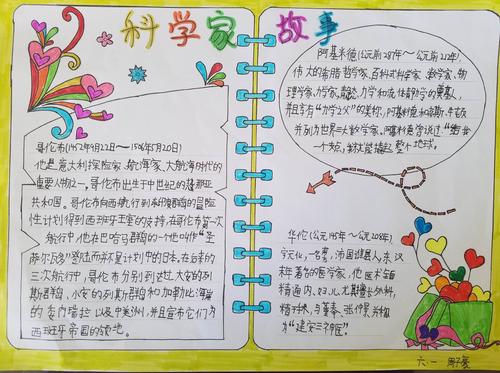 科学家故事
哥伦布(1452年9月22日~1506年5月20日)
他是意大利探险家、航海家、大航海时代的
重要人物之一。哥伦布出生于中世纪的热那亚
共和国。哥伦布向西航行到东印度群岛的冒险
性计划得到西班牙王室的支持，在哥伦布第一次
航行中，他在巴哈马群岛的一个他叫作"圣
萨尔瓦多"登陆而并不是计划中的日本。在后来的
三次航行中，哥伦布分别到达过大安的列
斯群岛、小安的列斯群岛和加勒比海岸
的委内瑞拉以及中美洲，并且宣布它们为
西班牙帝国的领地。
阿基米德(公元前287年~公元前212年)，
伟大的古希腊哲学家、百科式科学家、数学家、物
理学家、力学家，静态力学和流体静力学的奠基人，
并且享有"力学之父"的美称，阿基米德和高斯、牛顿
并列为世界三大数学家。阿基米德曾说过："给我
一个支点，我就能撬起整个地球。
华佗(公元145年~公元208年)，
字元化，一名旉，沛国谯县人，东汉
末年著名的医学家，他医术全面
精通内、妇、儿，尤其擅长外科，
精于手术，与董奉、张仲景并称
为"建安三神医"。
六、一